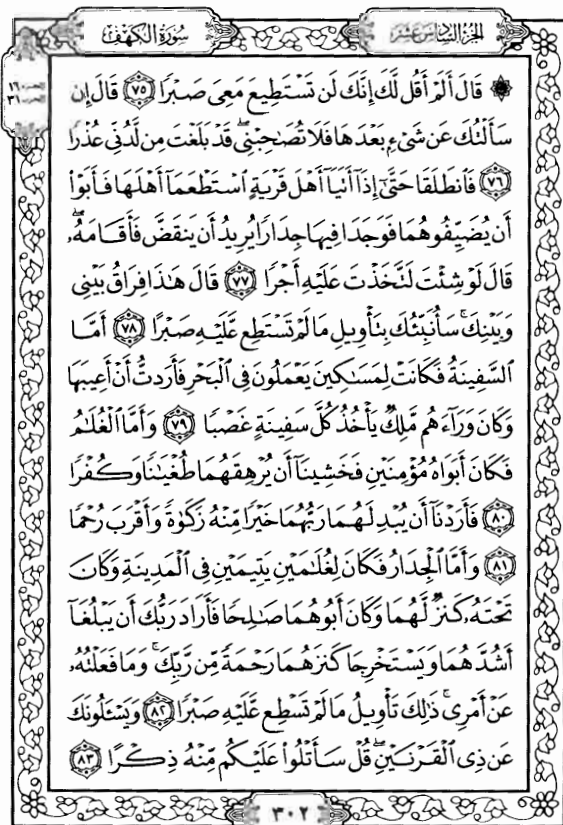 سُورَةُ الكَهْفِ
الجُزْءُ السَّادِسَ عَشَرَ
۞ قَالَ أَلَمْ أَقُل لَّكَ إِنَّكَ لَن تَسْتَطِيعَ مَعِىَ صَبْرًا ٧٥ قَالَ إِن
سَأَلْتُكَ عَن شَىْءٍۭ بَعْدَهَا فَلَا تُصَٰحِبْنِى ۖ قَدْ بَلَغْتَ مِن لَّدُنِّى عُذْرًا
٧٦ فَٱنطَلَقَا حَتَّىٰٓ إِذَآ أَتَيَآ أَهْلَ قَرْيَةٍ ٱسْتَطْعَمَآ أَهْلَهَا فَأَبَوْا۟
أَن يُضَيِّفُوهُمَا فَوَجَدَا فِيهَا جِدَارًا يُرِيدُ أَن يَنقَضَّ فَأَقَامَهُۥ ۖ
قَالَ لَوْ شِئْتَ لَتَّخَذْتَ عَلَيْهِ أَجْرًا ٧٧ قَالَ هَٰذَا فِرَاقُ بَيْنِى
وَبَيْنِكَ ۚ سَأُنَبِّئُكَ بِتَأْوِيلِ مَا لَمْ تَسْتَطِع عَّلَيْهِ صَبْرًا ٧٨ أَمَّا
ٱلسَّفِينَةُ فَكَانَتْ لِمَسَٰكِينَ يَعْمَلُونَ فِى ٱلْبَحْرِ فَأَرَدتُّ أَنْ أَعِيبَهَا
وَكَانَ وَرَآءَهُم مَّلِكٌ يَأْخُذُ كُلَّ سَفِينَةٍ غَصْبًا ٧٩ وَأَمَّا ٱلْغُلَٰمُ
فَكَانَ أَبَوَاهُ مُؤْمِنَيْنِ فَخَشِينَآ أَن يُرْهِقَهُمَا طُغْيَٰنًا وَكُفْرًا
٨٠ فَأَرَدْنَآ أَن يُبْدِلَهُمَا رَبُّهُمَا خَيْرًا مِّنْهُ زَكَوٰةً وَأَقْرَبَ رُحْمًا
٨١ وَأَمَّا ٱلْجِدَارُ فَكَانَ لِغُلَٰمَيْنِ يَتِيمَيْنِ فِى ٱلْمَدِينَةِ وَكَانَ
تَحْتَهُۥ كَنزٌ لَّهُمَا وَكَانَ أَبُوهُمَا صَٰلِحًا فَأَرَادَ رَبُّكَ أَن يَبْلُغَآ
أَشُدَّهُمَا وَيَسْتَخْرِجَا كَنزَهُمَا رَحْمَةً مِّن رَّبِّكَ ۚ وَمَا فَعَلْتُهُۥ
عَنْ أَمْرِى ۚ ذَٰلِكَ تَأْوِيلُ مَا لَمْ تَسْطِع عَّلَيْهِ صَبْرًا ٨٢ وَيَسْـَٔلُونَكَ
عَن ذِى ٱلْقَرْنَيْنِ ۖ قُلْ سَأَتْلُوا۟ عَلَيْكُم مِّنْهُ ذِكْرًا ٨٣
٣٠٢